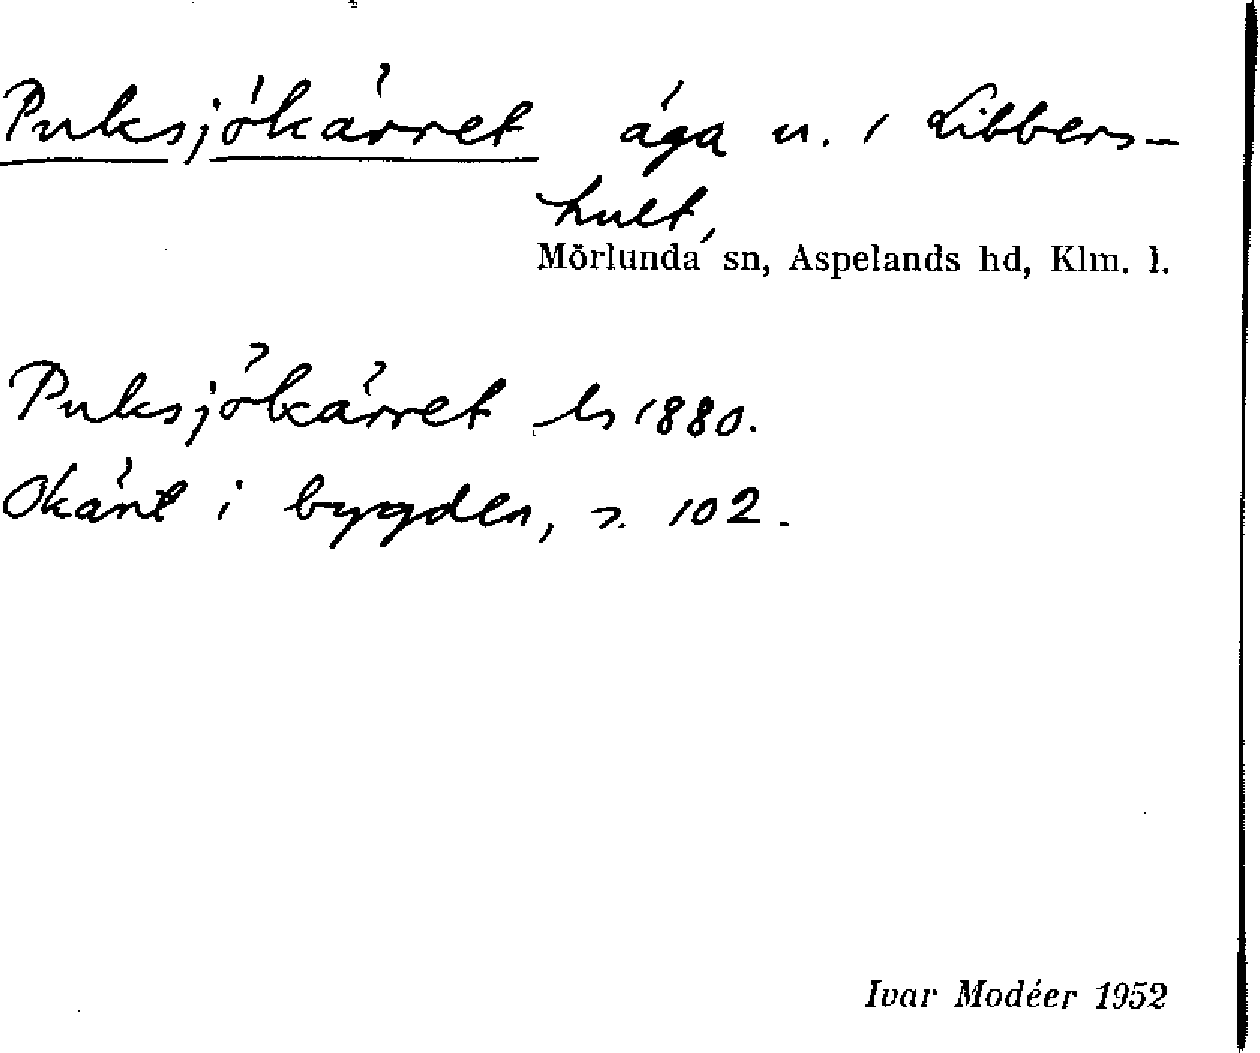 Puksjökärret äga u. / Libbers-
hult,
Mörlunda sn, Aspelands hd, Klm. l.
Puksjökärret ls 1880.
Okänt i bygden, s. 102.
Ivar Modéer 1952